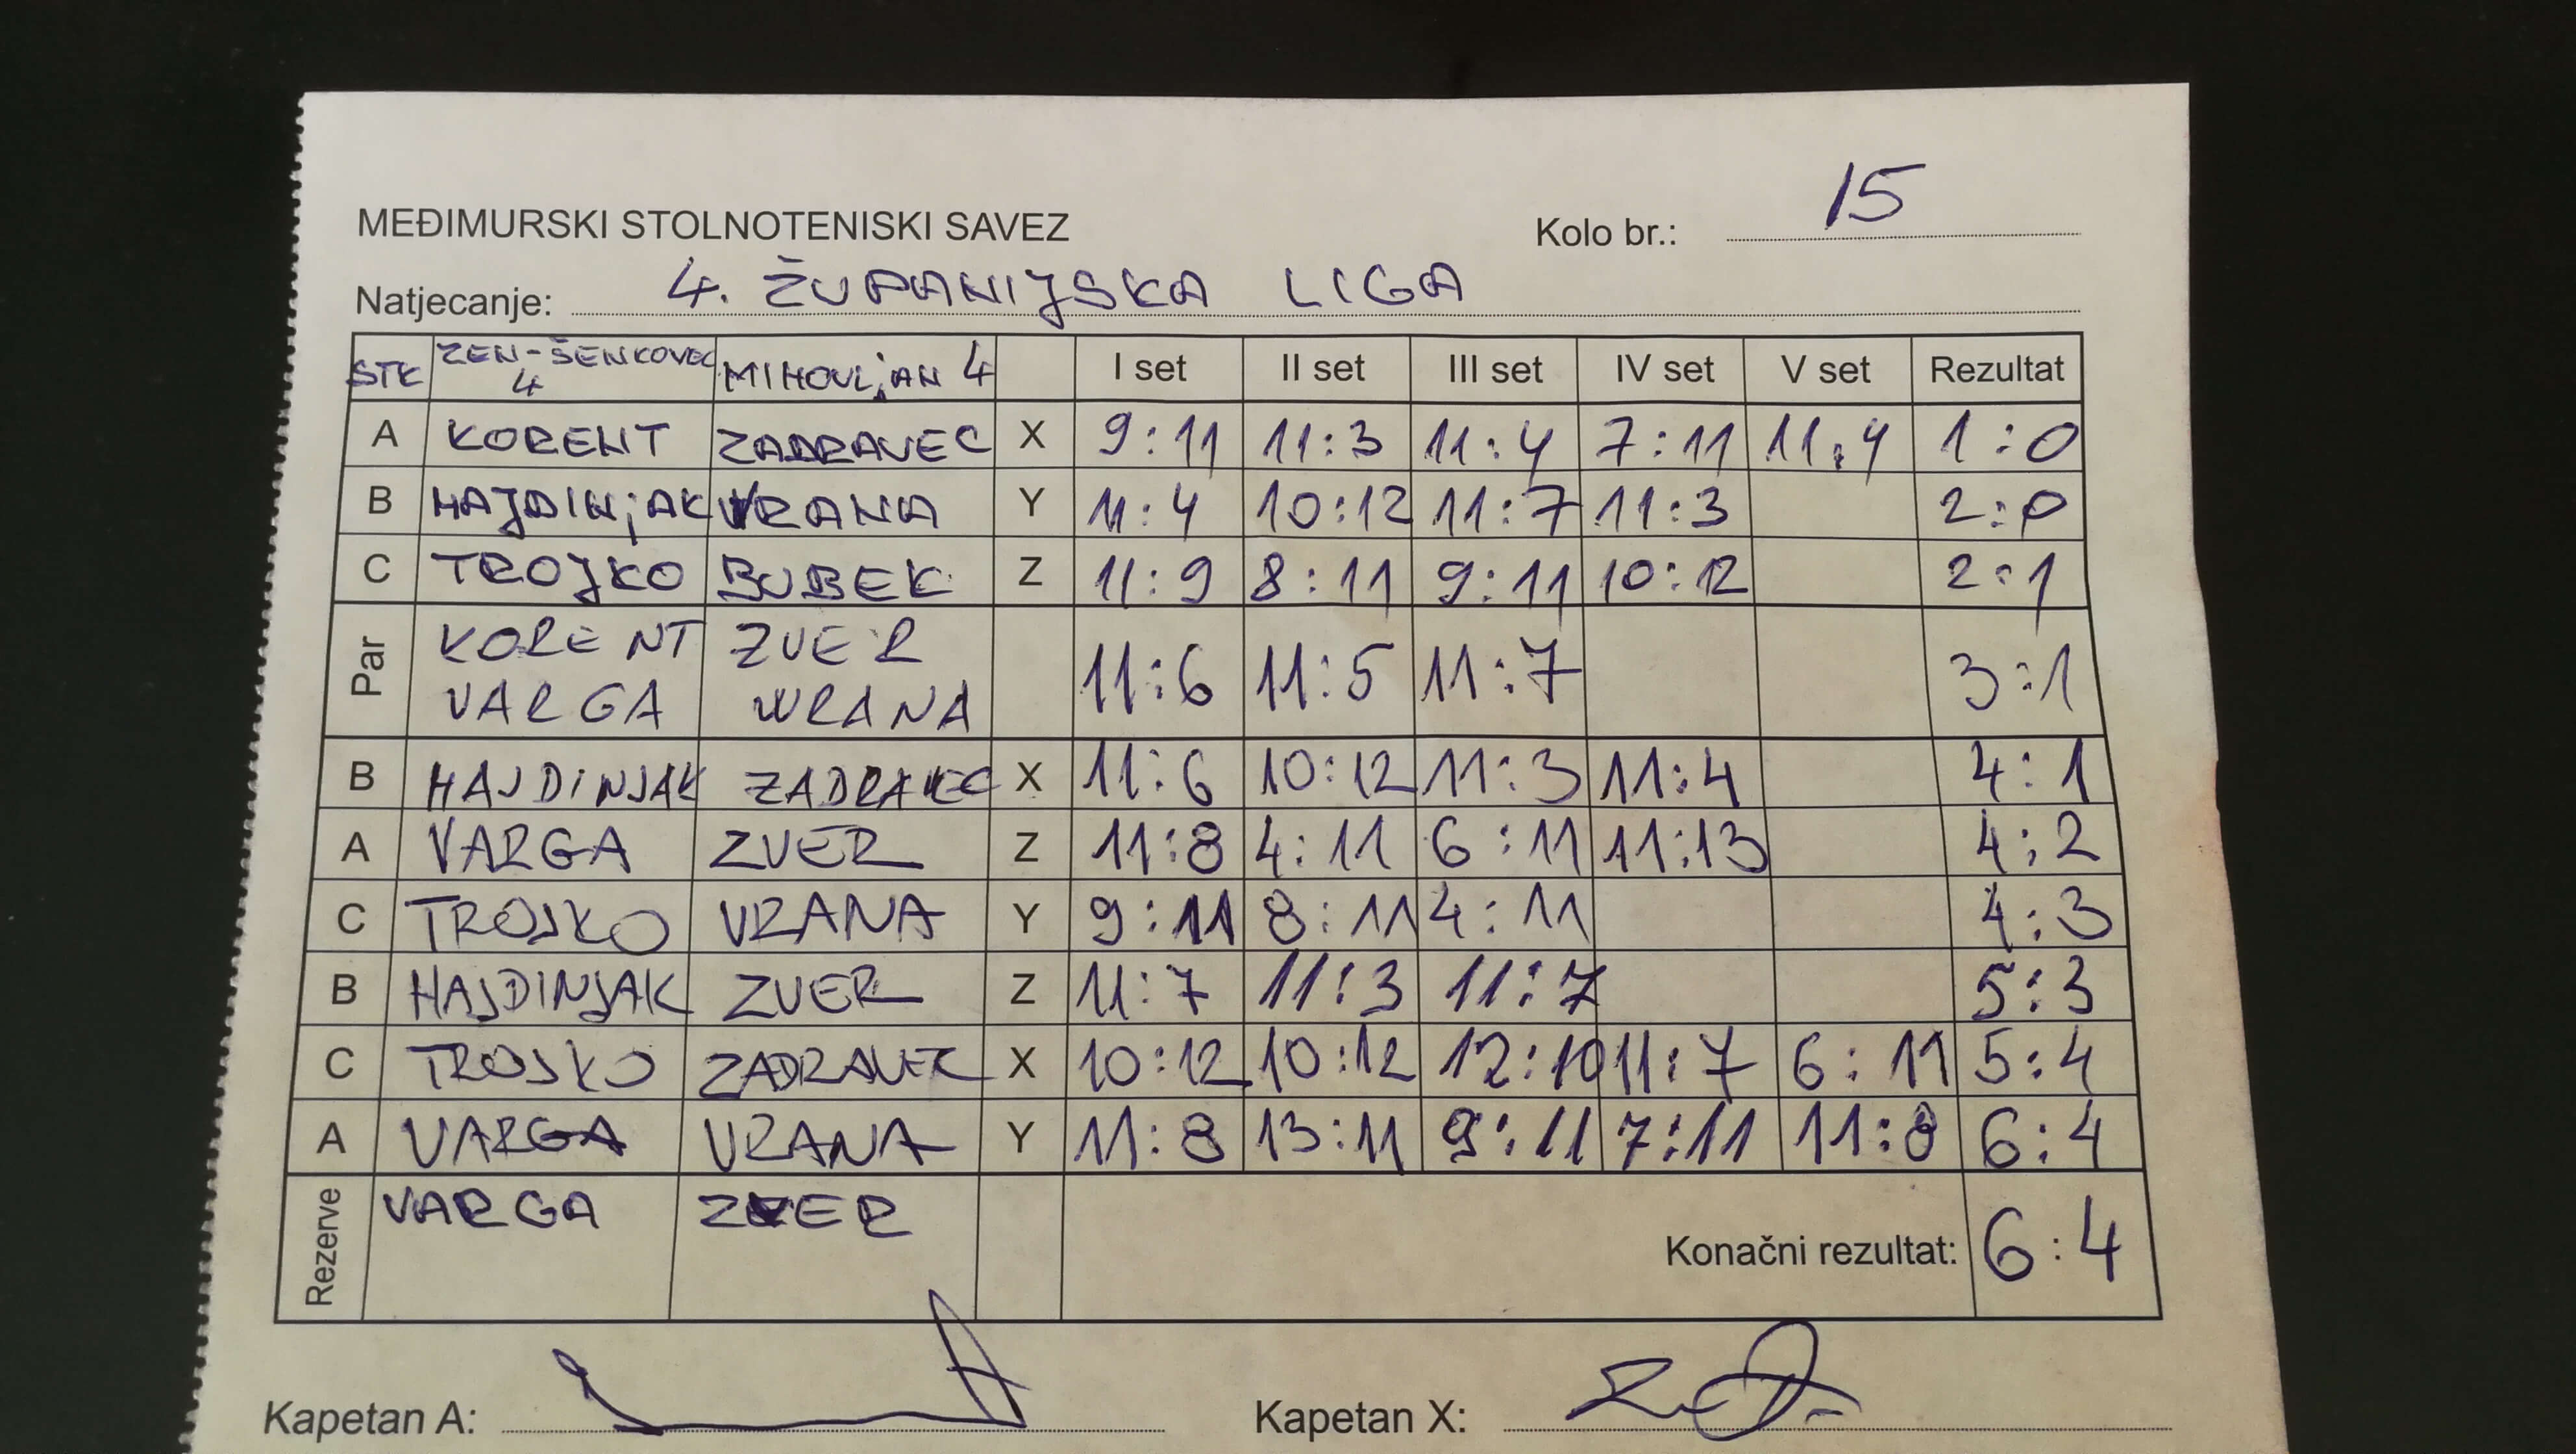 MEĐIMURSKI STOLNOTENISKI SAVEZ Kolo br.: 15
Natjecanje: 4. ŽUPANIJSKA LIGA
STK ZEN-ŠENKOVEC 4 MIHOVLjAN 4 I set II set III set IV set V set Rezultat
A KORENT ZADRAVEC X 9:11 11:3 11:4 7:11 11:4 1:0
B HAJDINjAK VRANA Y 11:4 10:12 11:7 11:3 2:0
C TROJKO BUBEK Z 11:9 8:11 9:11 10:12 2:1
Par KORENT VARGA ZVER VRANA 11:6 11:5 11:7 3:1
B HAJDINJAK ZADRAVEC X 11:6 10:12 11:3 11:4 4:1
A VARGA ZVER Z 11:8 4:11 6:11 11:13 4:2
C TROJKO VRANA Y 9:11 8:11 4:11 4:3
B HAJDINJAK ZVER Z 11:7 11:3 11:7 5:3
C TROJKO ZADRAVEC X 10:12 10:12 12:10 11:7 6:11 5:4
A VARGA VRANA Y 11:8 13:11 9:11 7:11 11:8 6:4
Rezerve VARGA ZVER Konačni rezultat: 6:4
Kapetan A: Kapetan X: